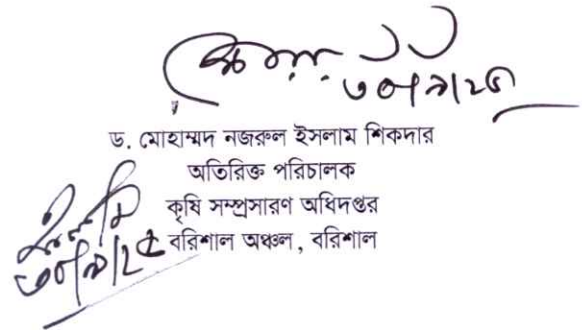 ৩০/৯/২৫
ড. মোহাম্মদ নজরুল ইসলাম শিকদার
অতিরিক্ত পরিচালক
কৃষি সম্প্রসারণ অধিদপ্তর
বরিশাল অঞ্চল, বরিশাল
৩০/৯/২৫